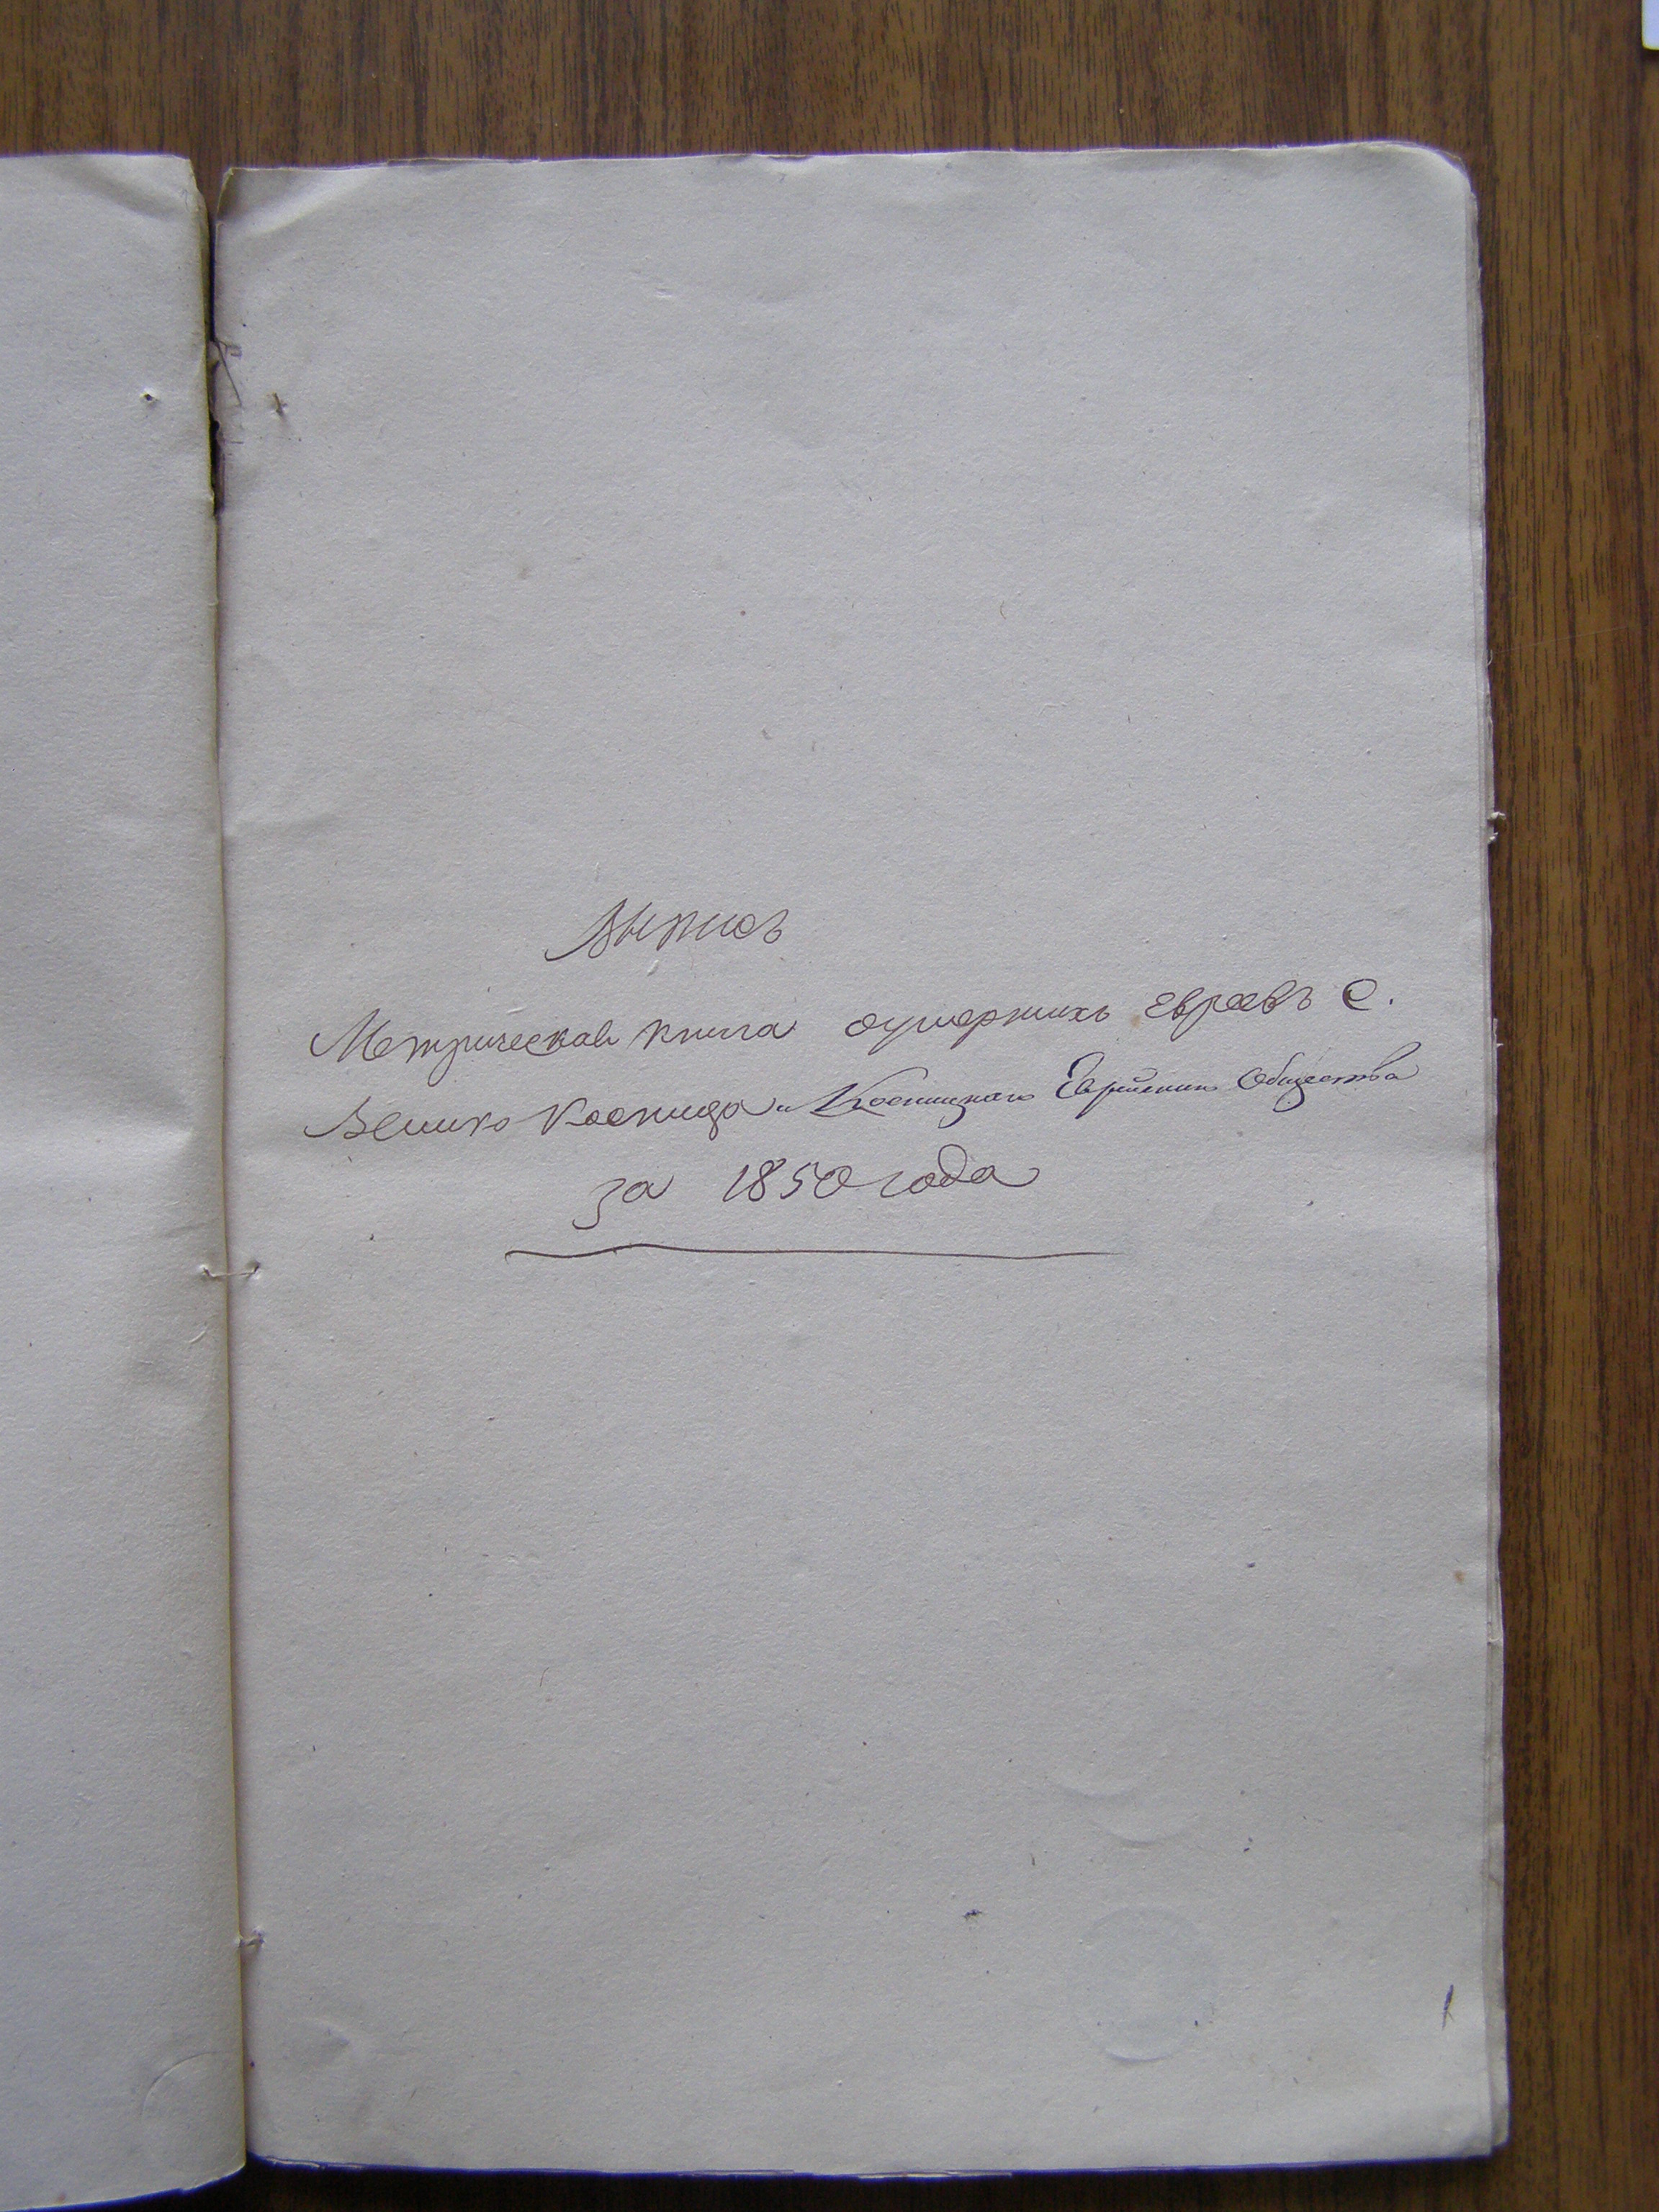 Выпись
Метрическая книга оумершихъ Евреевъ С.
Велико Косницa и Косницкаго Еврейскаго Общества
за 1850 года